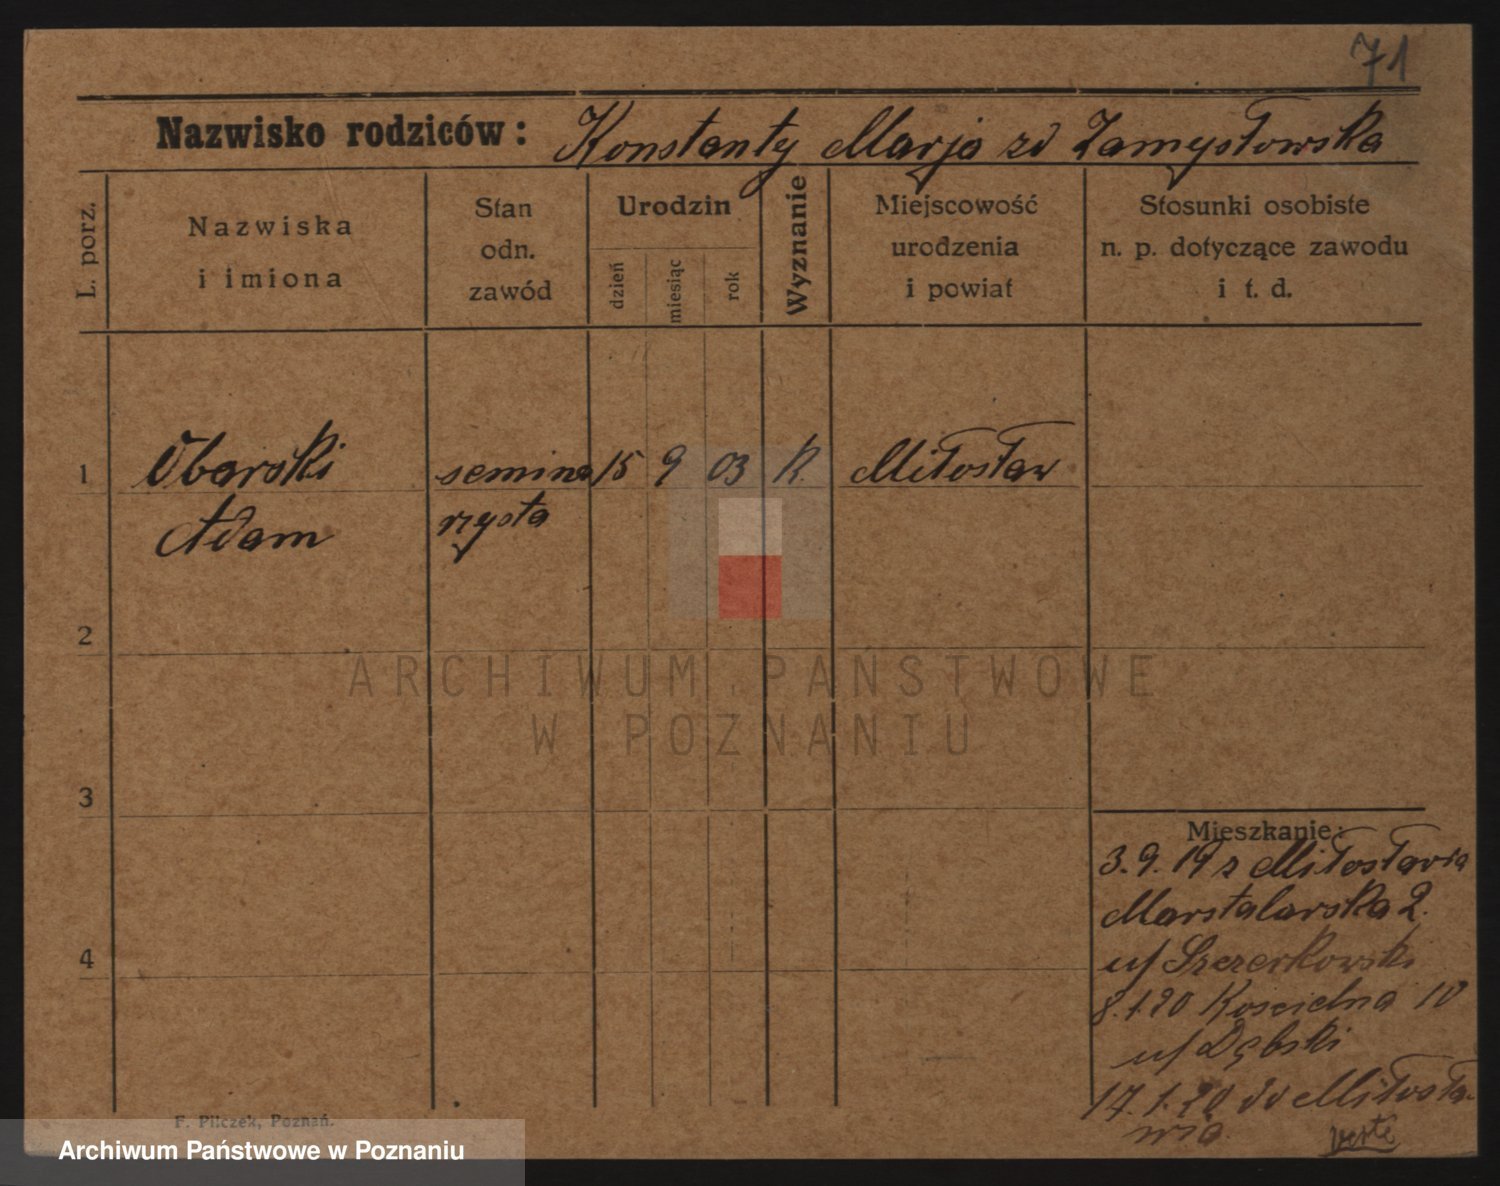 71
Nazwisko rodziców: Konstanty Marja zd Zamysłowska
L. porz.
Nazwiska
i imiona
Stan
odn.
zawód
Urodzin
dzień
miesiąc
rok
Wyznanie
Miejscowość
urodzenia
i powiat
Stosunki osobiste
n. p. dotyczące zawodu
i t. d.
1
Obarski
Adam
semina
rzysta
15 9 03 k. Miłosław
2
ARCHIWUM PAŃSTWOWE
W POZNANIU
3
Mieszkanie:
3.9.19 z Miłosławia
Marstalarska 2.
u/ Szczerkowski
8.1.20 Kościelna 10
u/ Dębski
4
17.1.20 do Miłosła-
wia.
verte
F. Pilczek, Poznań.
Archiwum Państwowe w Poznaniu